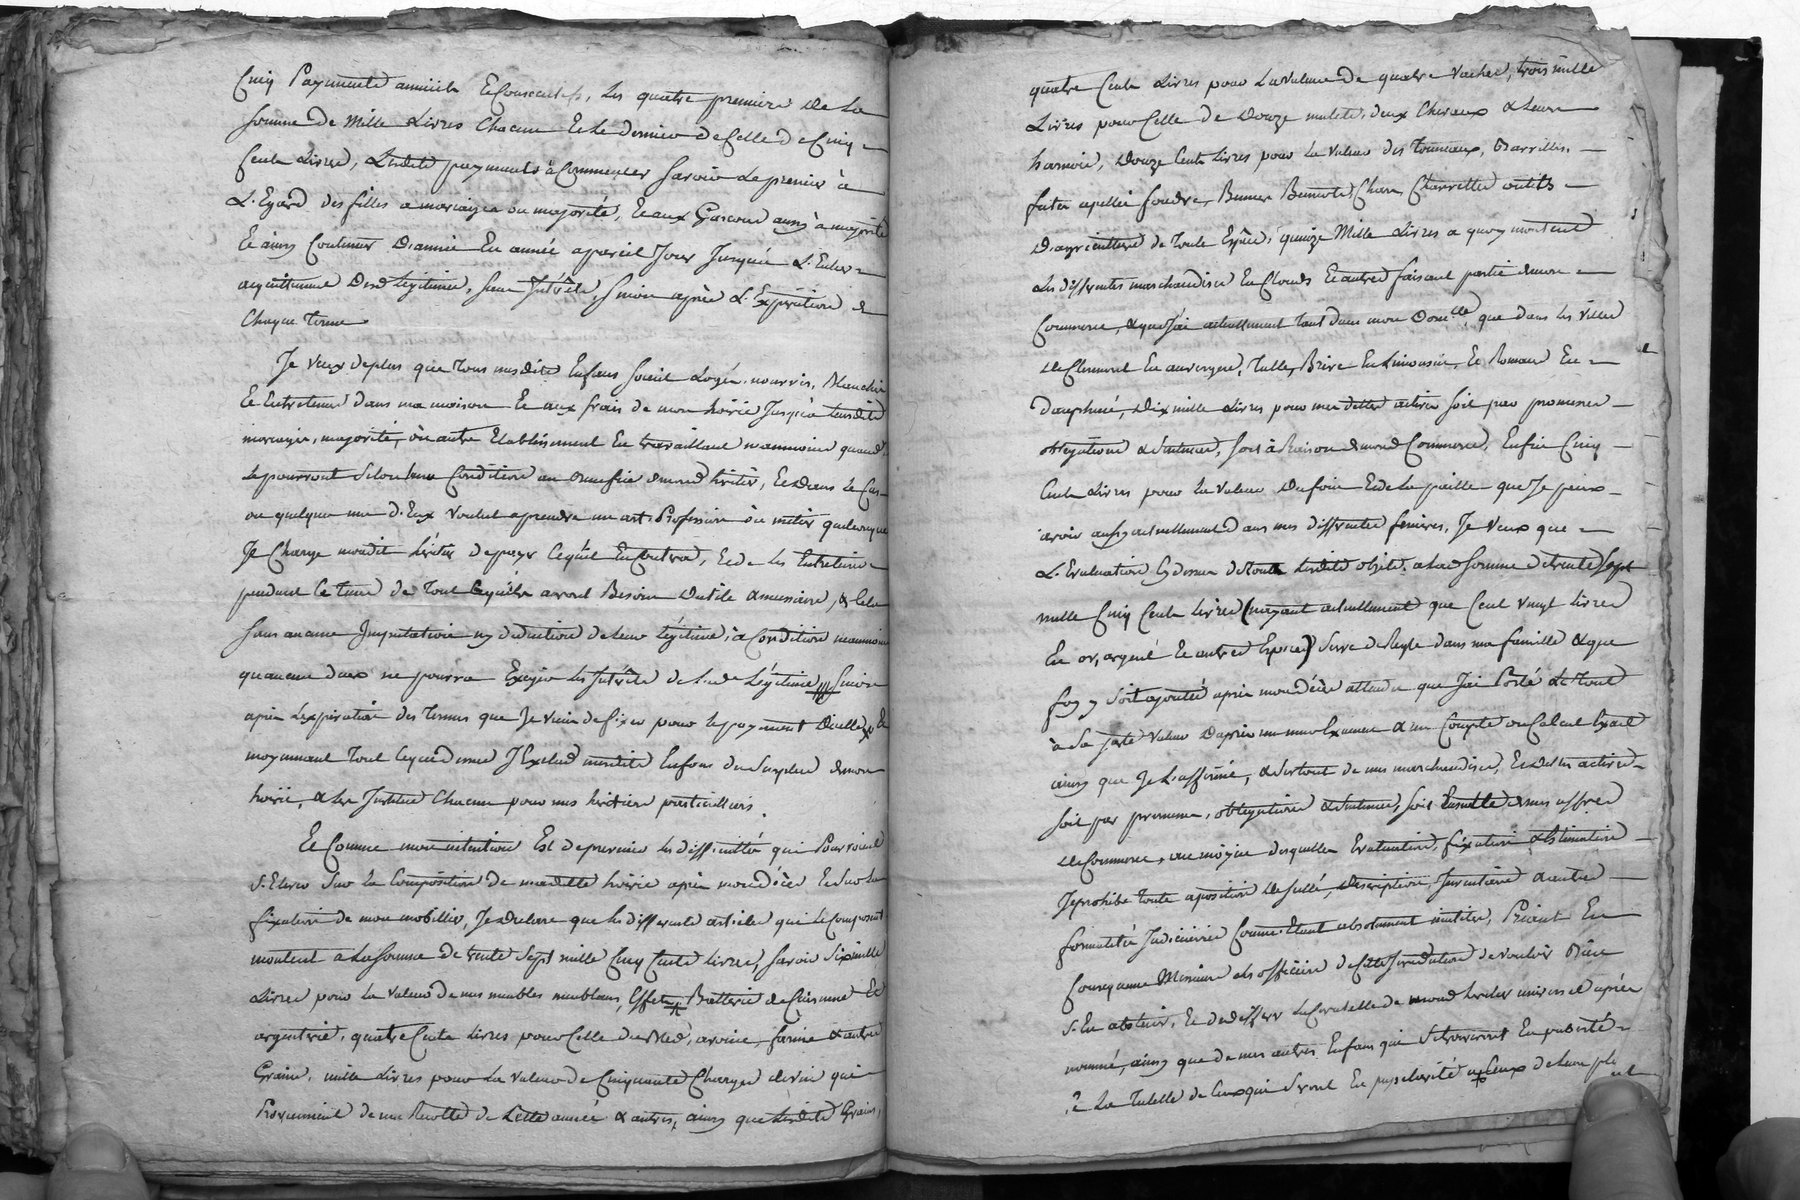 Cinq Payments annuels & Consecutifs, les quatre premiers de la
somme de Mille Livres Chacun Et le dernier de Celle de Cinq
Cents Livres, Lesdits payments à Commencer savoir Le premier à
L'Egard des filles a mariage ou majorité, Et aux Garcons aussy à majorité
Et ainsy Continuer D'année En année a pareil Jour Jusqu'à L'Entier
acquittement Desd Legitimes, sans Intérêts, sinon après L'Expiration de
Chaque terme
Je Veux deplus que tous mesdits Enfans soient Logés, nourris, Blanchis
Et Entretenus dans ma maison Et aux frais de mon hoirie Jusqu'à leursdits
mariages, majorité, ou autre Etablissement En travaillant neanmoins quand
Le pourront selon leur Condition au Benefice demond héritier, Et Dans le Cas
ou quelqu un d'Eux Voulut aprendre un art, Profession ou métier quelconque
Je Charge mondit héritier de payer Ce qu'il En Coutera, Et de les Entretenir
pendant Ce tems de Tout Ce qu'ils auront Besoin D'utile & necessaire, & Cela
sans aucune Imputation ny deduction de Leur Légitime, à Condition neanmoins
qu'aucun d'eux ne pourra Exiger les Intérêts de Lad Légitime sinon
après L'expiration des Termes que Je Viens de fixer pour le payment D'icelle, Et
moyennant tout Ce que dessus J'Exclus mesdits Enfans du surplus de mon
hoirie, & les Institue Chacun pour mes héritiers particulliers
Et Comme mon intention Est de prevenir les difficultés qui Pourroient
S'Elever sur la Composition de madite hoirie après mon décès Et sur la
fixation de mon mobillier, Je Declare que les differents articles qui le Composent
montent à La somme de trente sept mille Cinq Cents livres, savoir six mille
Livres pour la Valeur de mes meubles meublans, Effets, Batterie de Cuisinne Et
argenterie, quatre Cents Livres pour Celle du Bled, avoine, farine & autres
Grains, mille Livres pour La Valeur de Cinquante Charges de vin qui
Proviennent de ma Recolte de Cette année & autres, ainsy que Lesdits Grains,
quatre Cents Livres pour La Valeur de quatre Vaches, trois mille
Livres pour Celle de Douze mulets, deux Chevaux & Leurs
harnois, Douze Cents Livres pour la Valeur des Tonneaux, Barrilles,
futes apellés foudres, Chars, Charrettes outils
D'agriculture de Toute Espèce, quinze Mille Livres a quoy montent
Les differentes marchandises En Clouds Et autres faisant partie de mon
Commerce, & que J'ai actuellement tant dans mon Dom.lle que dans les Villes
de Clermont En auvergne, Tulle, Brive En Limousin, Et Romans En
Dauphiné, Dix mille Livres pour mes dettes actives soit par promesses
obligations & sentences, soit à Raison de mond Commerce, Enfin Cinq
Cents Livres pour la Valeur Du foin Et de La paille que Je peux
avoir aussy actuellement dans mes differentes fenieres, Je Veux que
L'Evaluation Cy dessus de tous Lesdits objets, a Lad somme de trente sept
mille Cinq Cents livres (n'ayant actuellement que Cent Vingt livres
En or, argent Et autres Especes) serve de Regle dans ma famille & que
foy y soit ajoutée après mon décès attendu que J'ai Porté Le tout
à sa juste Valeur Daprès un mur Examen & un Compte ou Calcul Exact
ainsy que Je L'affirme, & surtout de mes marchandises, Et dettes actives
soit par promesses, obligations & sentences, soit Ensuitte de mes affres
de Commerce, au moyen desquelles Evaluations, fixation & Estimation
Je prohibe toute aposition de scellé, Description, Inventaire & autres
formalités Judiciaires Comme Etant absolument inutiles, Priant En
Consequence Messieurs les officiers de Cette Jurediction de vouloir Bien
S'En abstenir, Et de differer La Curatelle de mond heritier universel après
nommé, ainsy que de mes autres Enfans qui se trouveront En puberté
& La Tutelle de Ceux qui seront En pupilarité à Ceux de Leurs